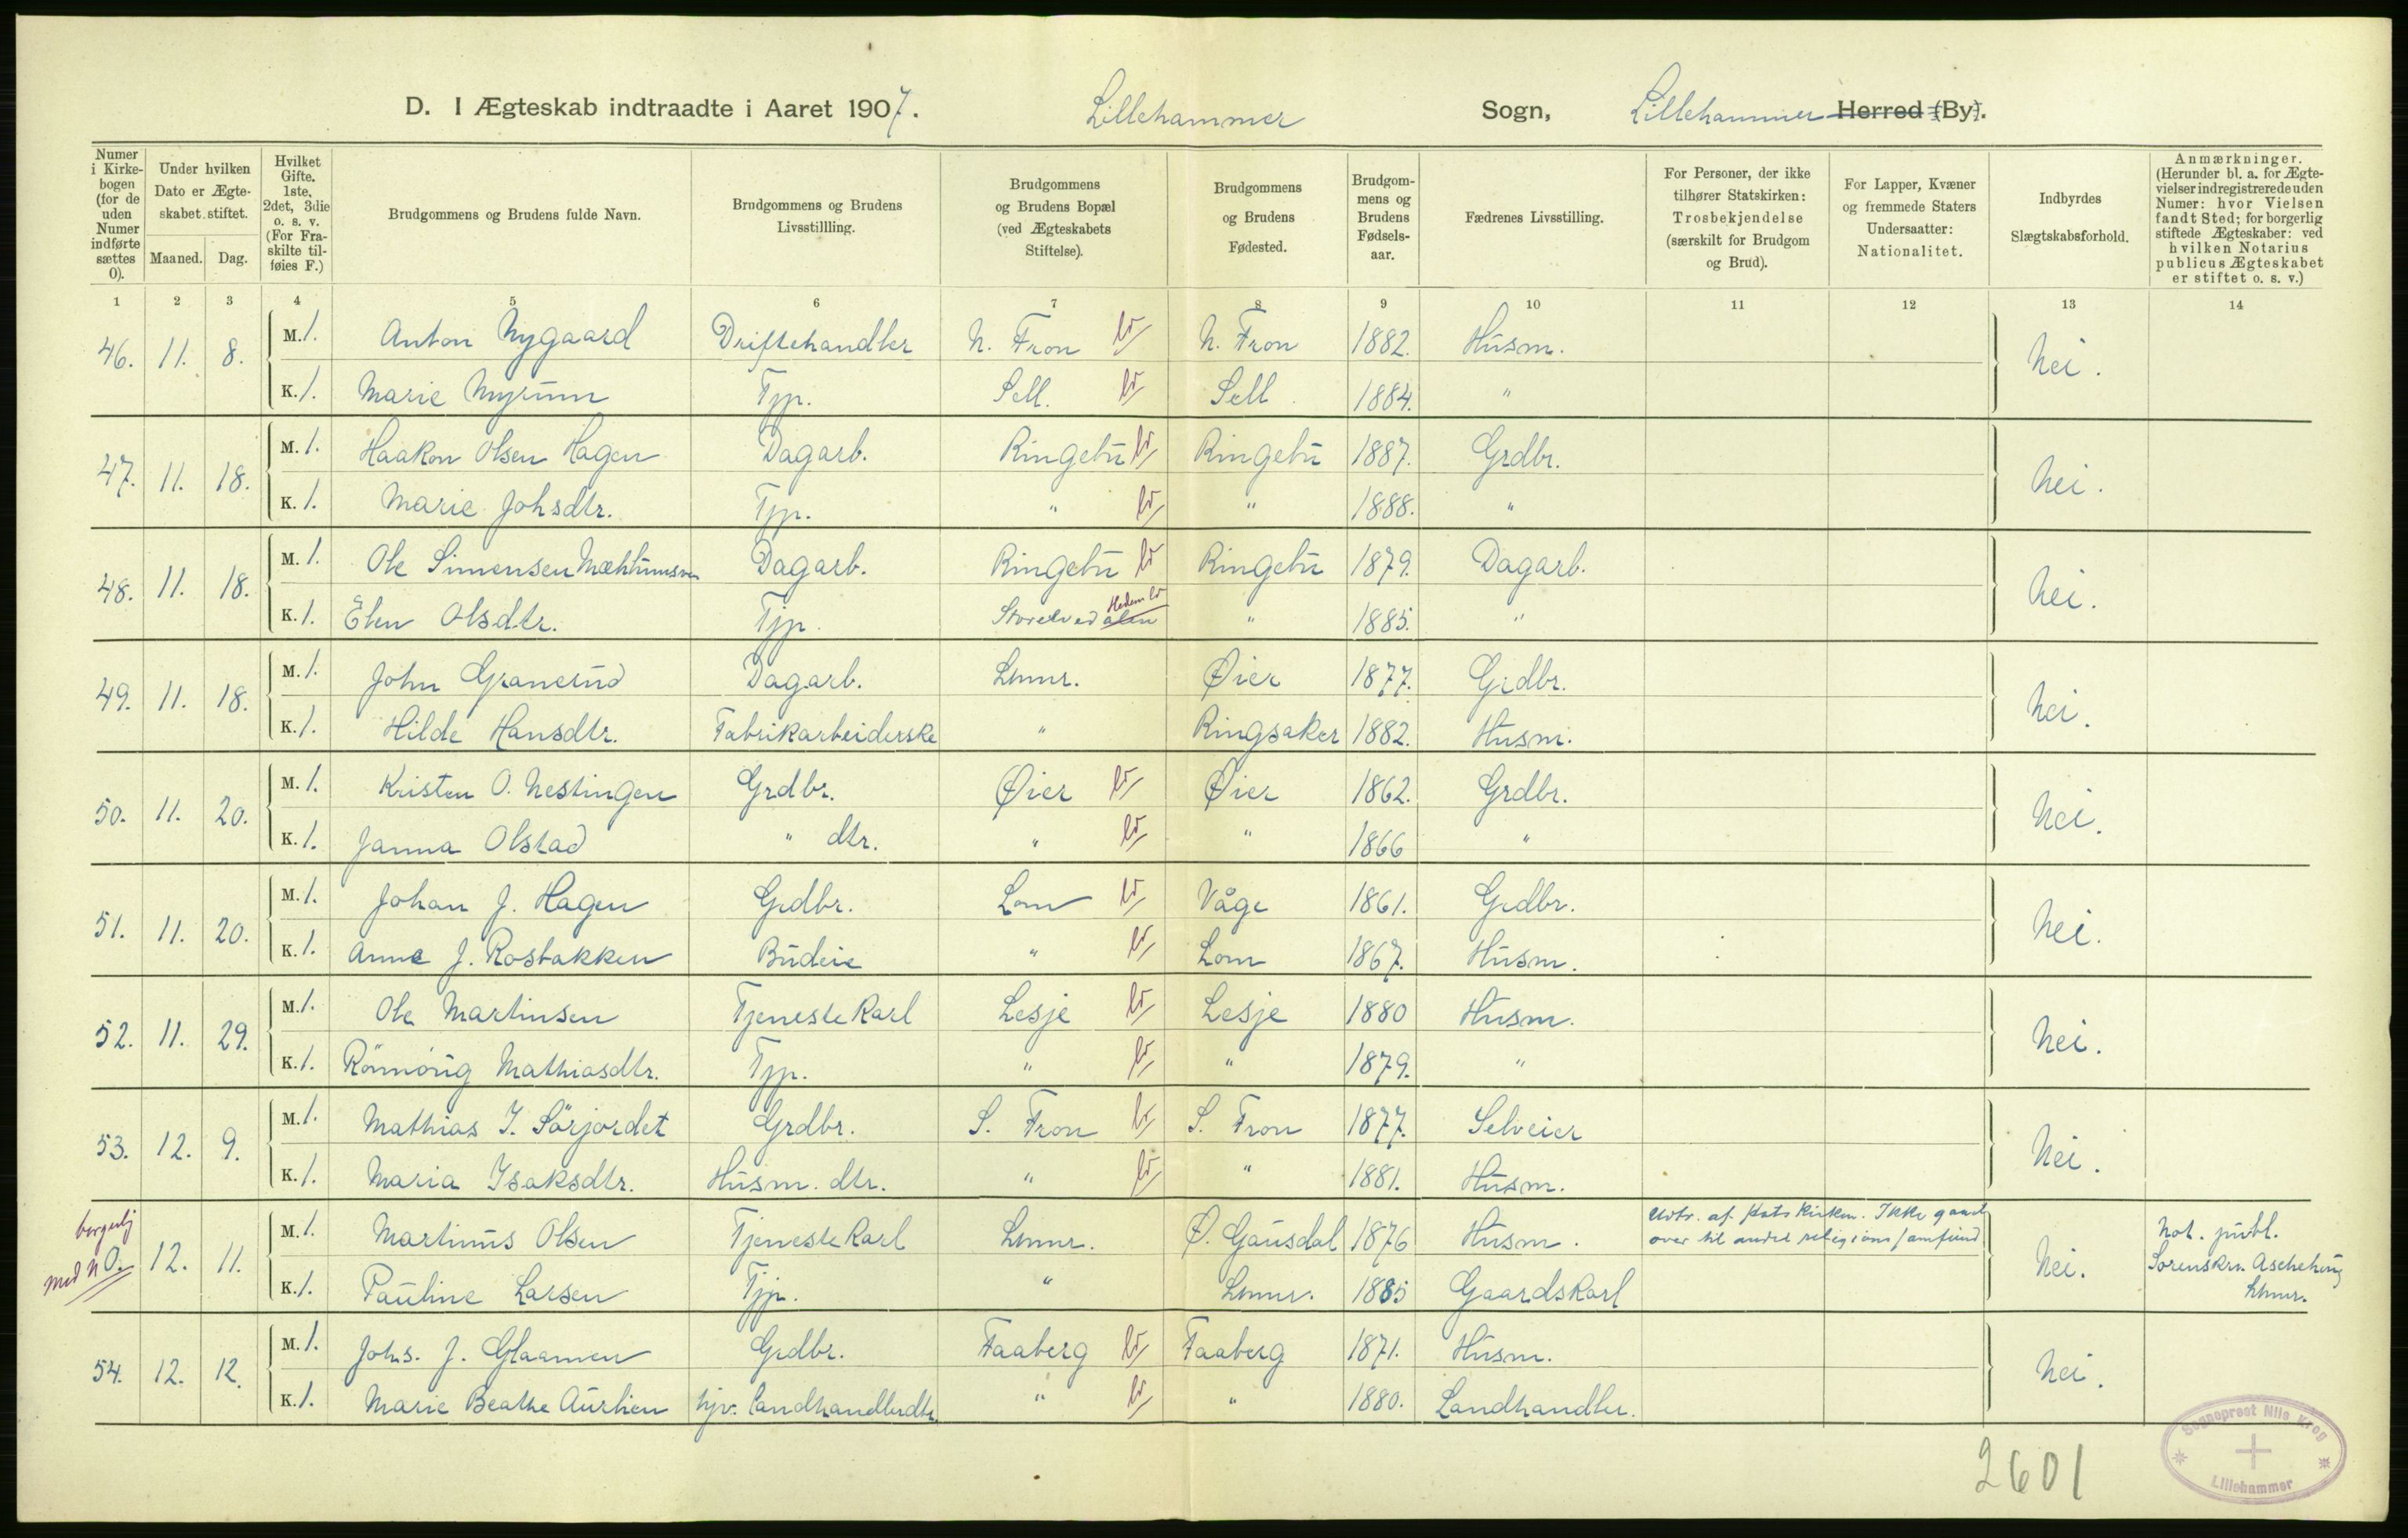 D. I Ægteskab indtraadte i Aaret 1907. Lillehammer Sogn, Lillehammer Herred (By).
Numer i Kirkebogen (for de uden Numer indførte sættes 0).
Under hvilken Dato er Ægteskabet stiftet.
Maaned. Dag.
Hvilket Gifte. 1ste, 2det, 3die o. s. v. (For Fraskilte tilføies F.)
Brudgommens og Brudens fulde Navn.
Brudgommens og Brudens Livsstillling.
Brudgommens og Brudens Bopæl (ved Ægteskabets Stiftelse).
Brudgommens og Brudens Fødested.
Brudgommens og Brudens Fødselsaar.
Fædrenes Livsstilling.
For Personer, der ikke tilhører Statskirken: Trosbekjendelse (særskilt for Brudgom og Brud).
For Lapper, Kvæner og fremmede Staters Undersaatter: Nationalitet.
Indbyrdes Slægtskabsforhold.
Anmærkninger. (Herunder bl. a. for Ægtevielser indregistrerede uden Numer: hvor Vielsen fandt Sted; for borgerlig stiftede Ægteskaber: ved hvilken Notarius publicus Ægteskabet er stiftet o. s. v.)
1 2 3 4 5 6 7 8 9 10 11 12 13 14
46. 11. 8. M. 1. Anton Nygaard Driftehandler N. Fron N. Fron 1882. Husm. Nei.
K. 1. Marie Myrum Tjp. Sell. Sell. 1884. "
47. 11. 18. M. 1. Haakon Olsen Hagen Dagarb. Ringebu Ringebu 1887. Grdbr. Nei.
K. 1. Marie Johsdtr. Tjp. " " 1888. "
48. 11. 18. M. 1. Ole Simensen Dagarb. Ringebu Ringebu 1879. Dagarb. Nei.
K. 1. Elen Olsdtr. Tjp. Storelvedalen Hedem " 1885. "
49. 11. 18. M. 1. John Granerud Dagarb. Lhmr. Øier 1877. Grdbr. Nei.
K. 1. Hilde Hansdtr. Fabrikarbeiderske " Ringsaker 1882. Husm.
50. 11. 20. M. 1. Kristen O. Nestingen Grdbr. Øier Øier 1862. Grdbr. Nei.
K. 1. Janna Olstad " dtr. " " 1866 "
51. 11. 20. M. 1. Johan J. Hagen Grdbr. Lom Våge 1861. Grdbr. Nei.
K. 1. Anne J. Rosbakken Budeie " Lom 1867. Husm.
52. 11. 29. M. 1. Ole Martinsen Tjenestekarl Lesje Lesje 1880 Husm. Nei.
K. 1. Rönnöug Mathiasdtr. Tjp. " " 1879. "
53. 12. 9. M. 1. Mathias I. Sörjordet Grdbr. S. Fron S. Fron 1877. Selveier Nei.
K. 1. Maria Isaksdtr. Husm. dtr. " " 1881. Husm.
borgerlig
med n 0. 12. 11. M. 1. Martinus Olsen Tjenestekarl Lhmr. Ø. Gausdal 1876 Husm. Udtr. af statskirken. Ikke gaaet over til andet religionssamfund Nei. Not. publ. Sorenskr. Aschehoug Lhmr.
K. 1. Pauline Larsen Tjp. " Lhmr. 1885 Gaardskarl
54. 12. 12. M. 1. Johs. J. Glaamen Grdbr. Faaberg Faaberg 1871. Husm. Nei.
K. 1. Marie Beathe Aurlien hjv. Landhandlerdtr. " " 1880. Landhandler.
2601
Sogneprest Nils Krog
Lillehammer